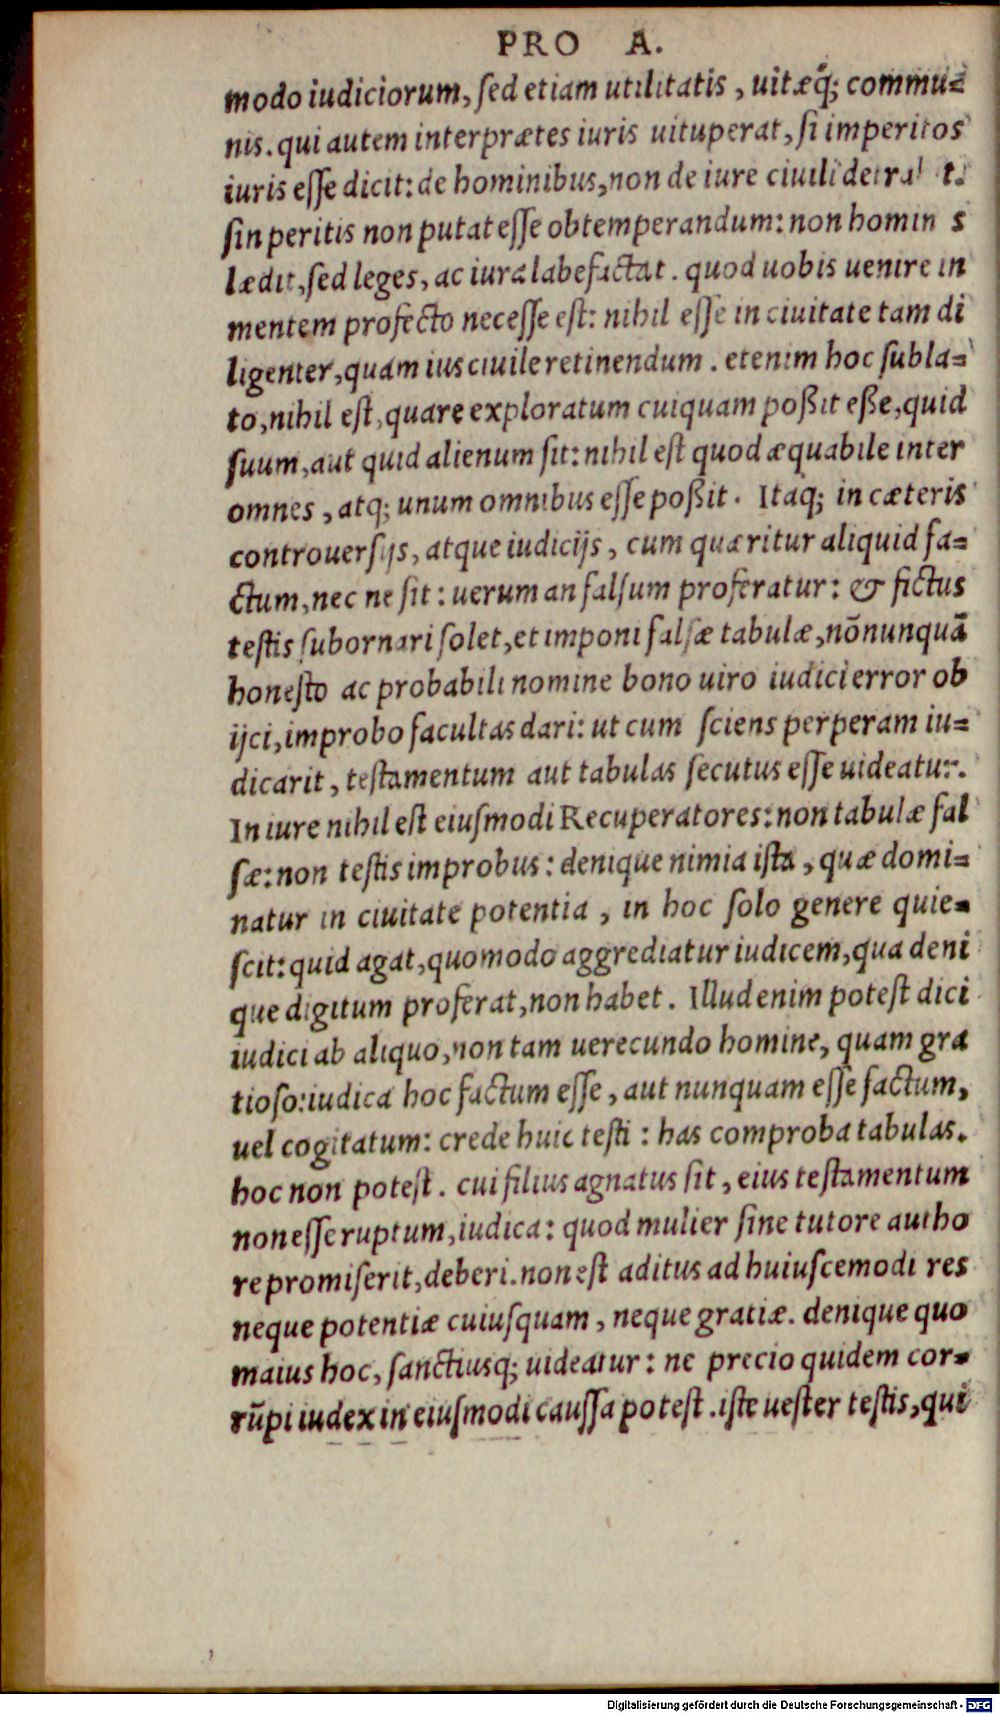 PRO A.
modo iudiciorum, sed etiam utilitatis, uitæq́; commu=
nis. qui autem interprætes iuris uituperat, si imperitos
iuris esse dicit: de hominibus, non de iure ciuili
sin peritis non putat esse obtemperandum: non homin s
lædit, sed leges, ac iura labefactat. quod uobis uenire in
mentem profecto necesse est: nihil esse in ciuitate tam di
ligenter, quam ius ciuile retinendum. etenim hoc subla=
to, nihil est, quare exploratum cuiquam poßit eße, quid
suum, aut quid alienum sit: nihil est quod æquabile inter
omnes, atq; unum omnibus esse poßit. Itaq; in cæteris
controuersijs, atque iudicijs, cum quæritur aliquid fa=
ctum, nec ne sit: uerum an falsum proferatur: & fictus
testis subornari solet, et imponi falsæ tabulæ, nõnunquã
honesto ac probabili nomine bono uiro iudici error ob
ijci, improbo facultas dari: ut cum sciens perperam iu=
dicarit, testamentum aut tabulas secutus esse uideatur.
In iure nihil est eiusmodi Recuperatores: non tabulæ fal
sæ: non testis improbus: denique nimia ista, quæ domi=
natur in ciuitate potentia, in hoc solo genere quie=
scit: quid agat, quomodo aggrediatur iudicem, qua deni
que digitum proferat, non habet. Illud enim potest dici
iudici ab aliquo, non tam uerecundo homine, quam gra
tioso: iudica hoc factum esse, aut nunquam esse factum,
uel cogitatum: crede huic testi: has comproba tabulas.
hoc non potest. cui filius agnatus sit, eius testamentum
non esse ruptum, iudica: quod mulier sine tutore autho
re promiserit, deberi. non est aditus ad huiuscemodi res
neque potentiæ cuiusquam, neque gratiæ. denique quo
maius hoc, sanctiusq; uideatur: ne precio quidem cor=
rũpi iudex in eiusmodi caussa potest. iste uester testis, qui
Digitalisierung gefördert durch die Deutsche Forschungsgemeinschaft - DFG